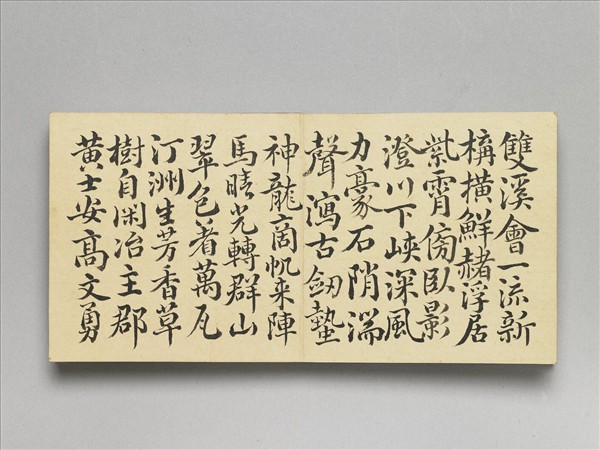 雙溪會一流新
構橫鮮赭浮居
紫霄傍臥影
澄川下峽深風
力豪石陗湍
聲瀉古劒蟄
神龍商帆来陣
馬晴光轉群山
翠色著萬瓦
汀洲生芳香草
樹自閑冶主郡
黃士安高文勇